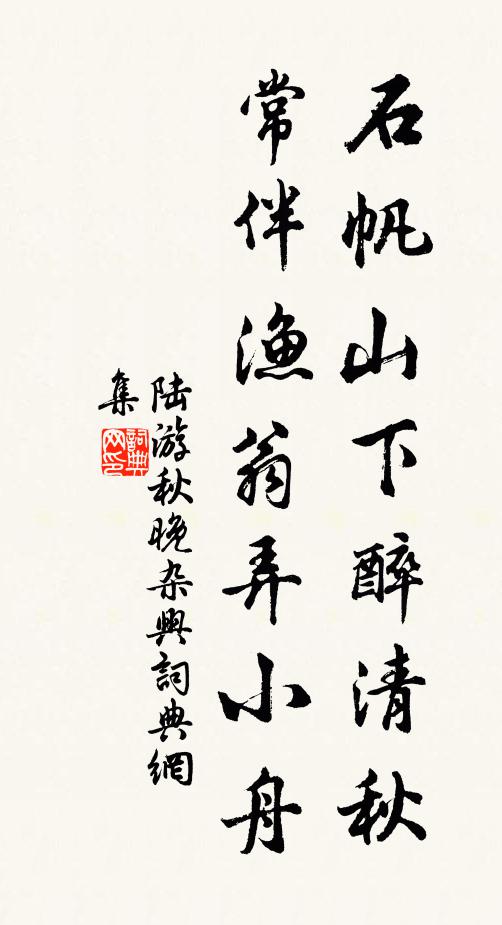 石帆山下醉清秋
常伴渔翁弄小舟
陆游秋晚杂興詞典網
集
詞典网印